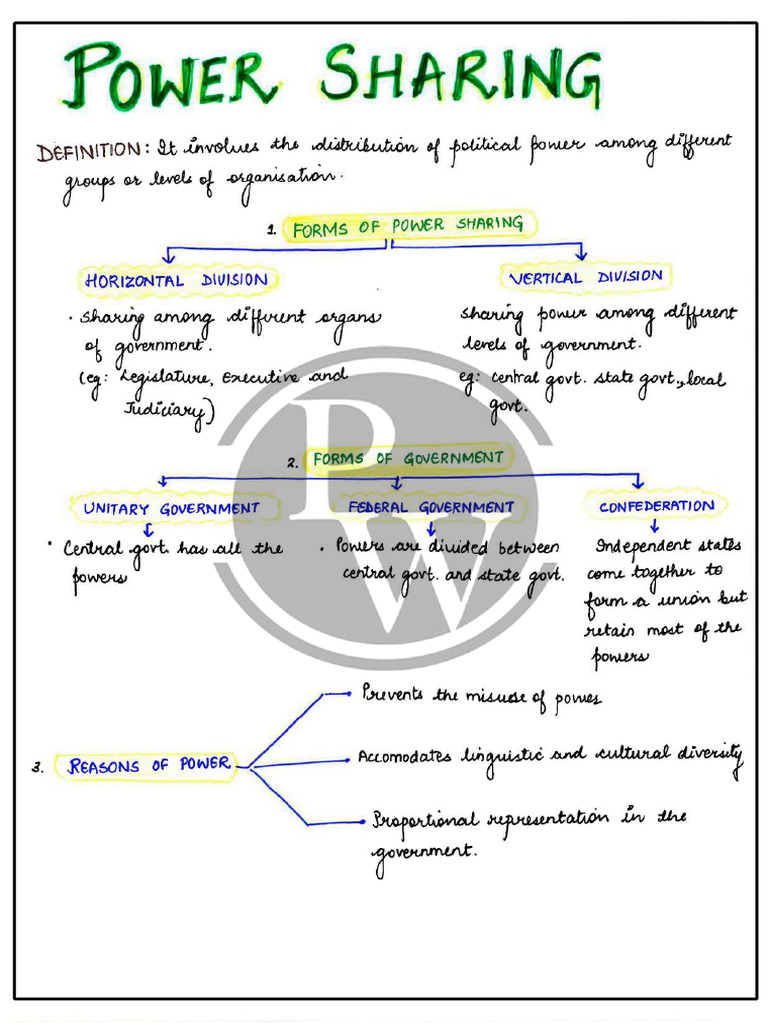 POWER SHARING
DEFINITION: It involves the distribution of political power among different
groups or levels of organisation.
1. FORMS OF POWER SHARING
HORIZONTAL DIVISION
• Sharing among different organs
of government.
(eg: Legislature, Executive and
Judiciary)
VERTICAL DIVISION
Sharing power among different
levels of government.
eg: central govt. state govt., local
govt.
2. FORMS OF GOVERNMENT
UNITARY GOVERNMENT
• Central govt. has all the
powers
FEDERAL GOVERNMENT
• Powers are divided between
central govt. and state govt.
CONFEDERATION
Independent states
come together to
form a union but
retain most of the
powers
3. REASONS OF POWER
Prevents the misuse of power
Accomodates linguistic and cultural diversity
Proportional representation in the
government.
PW